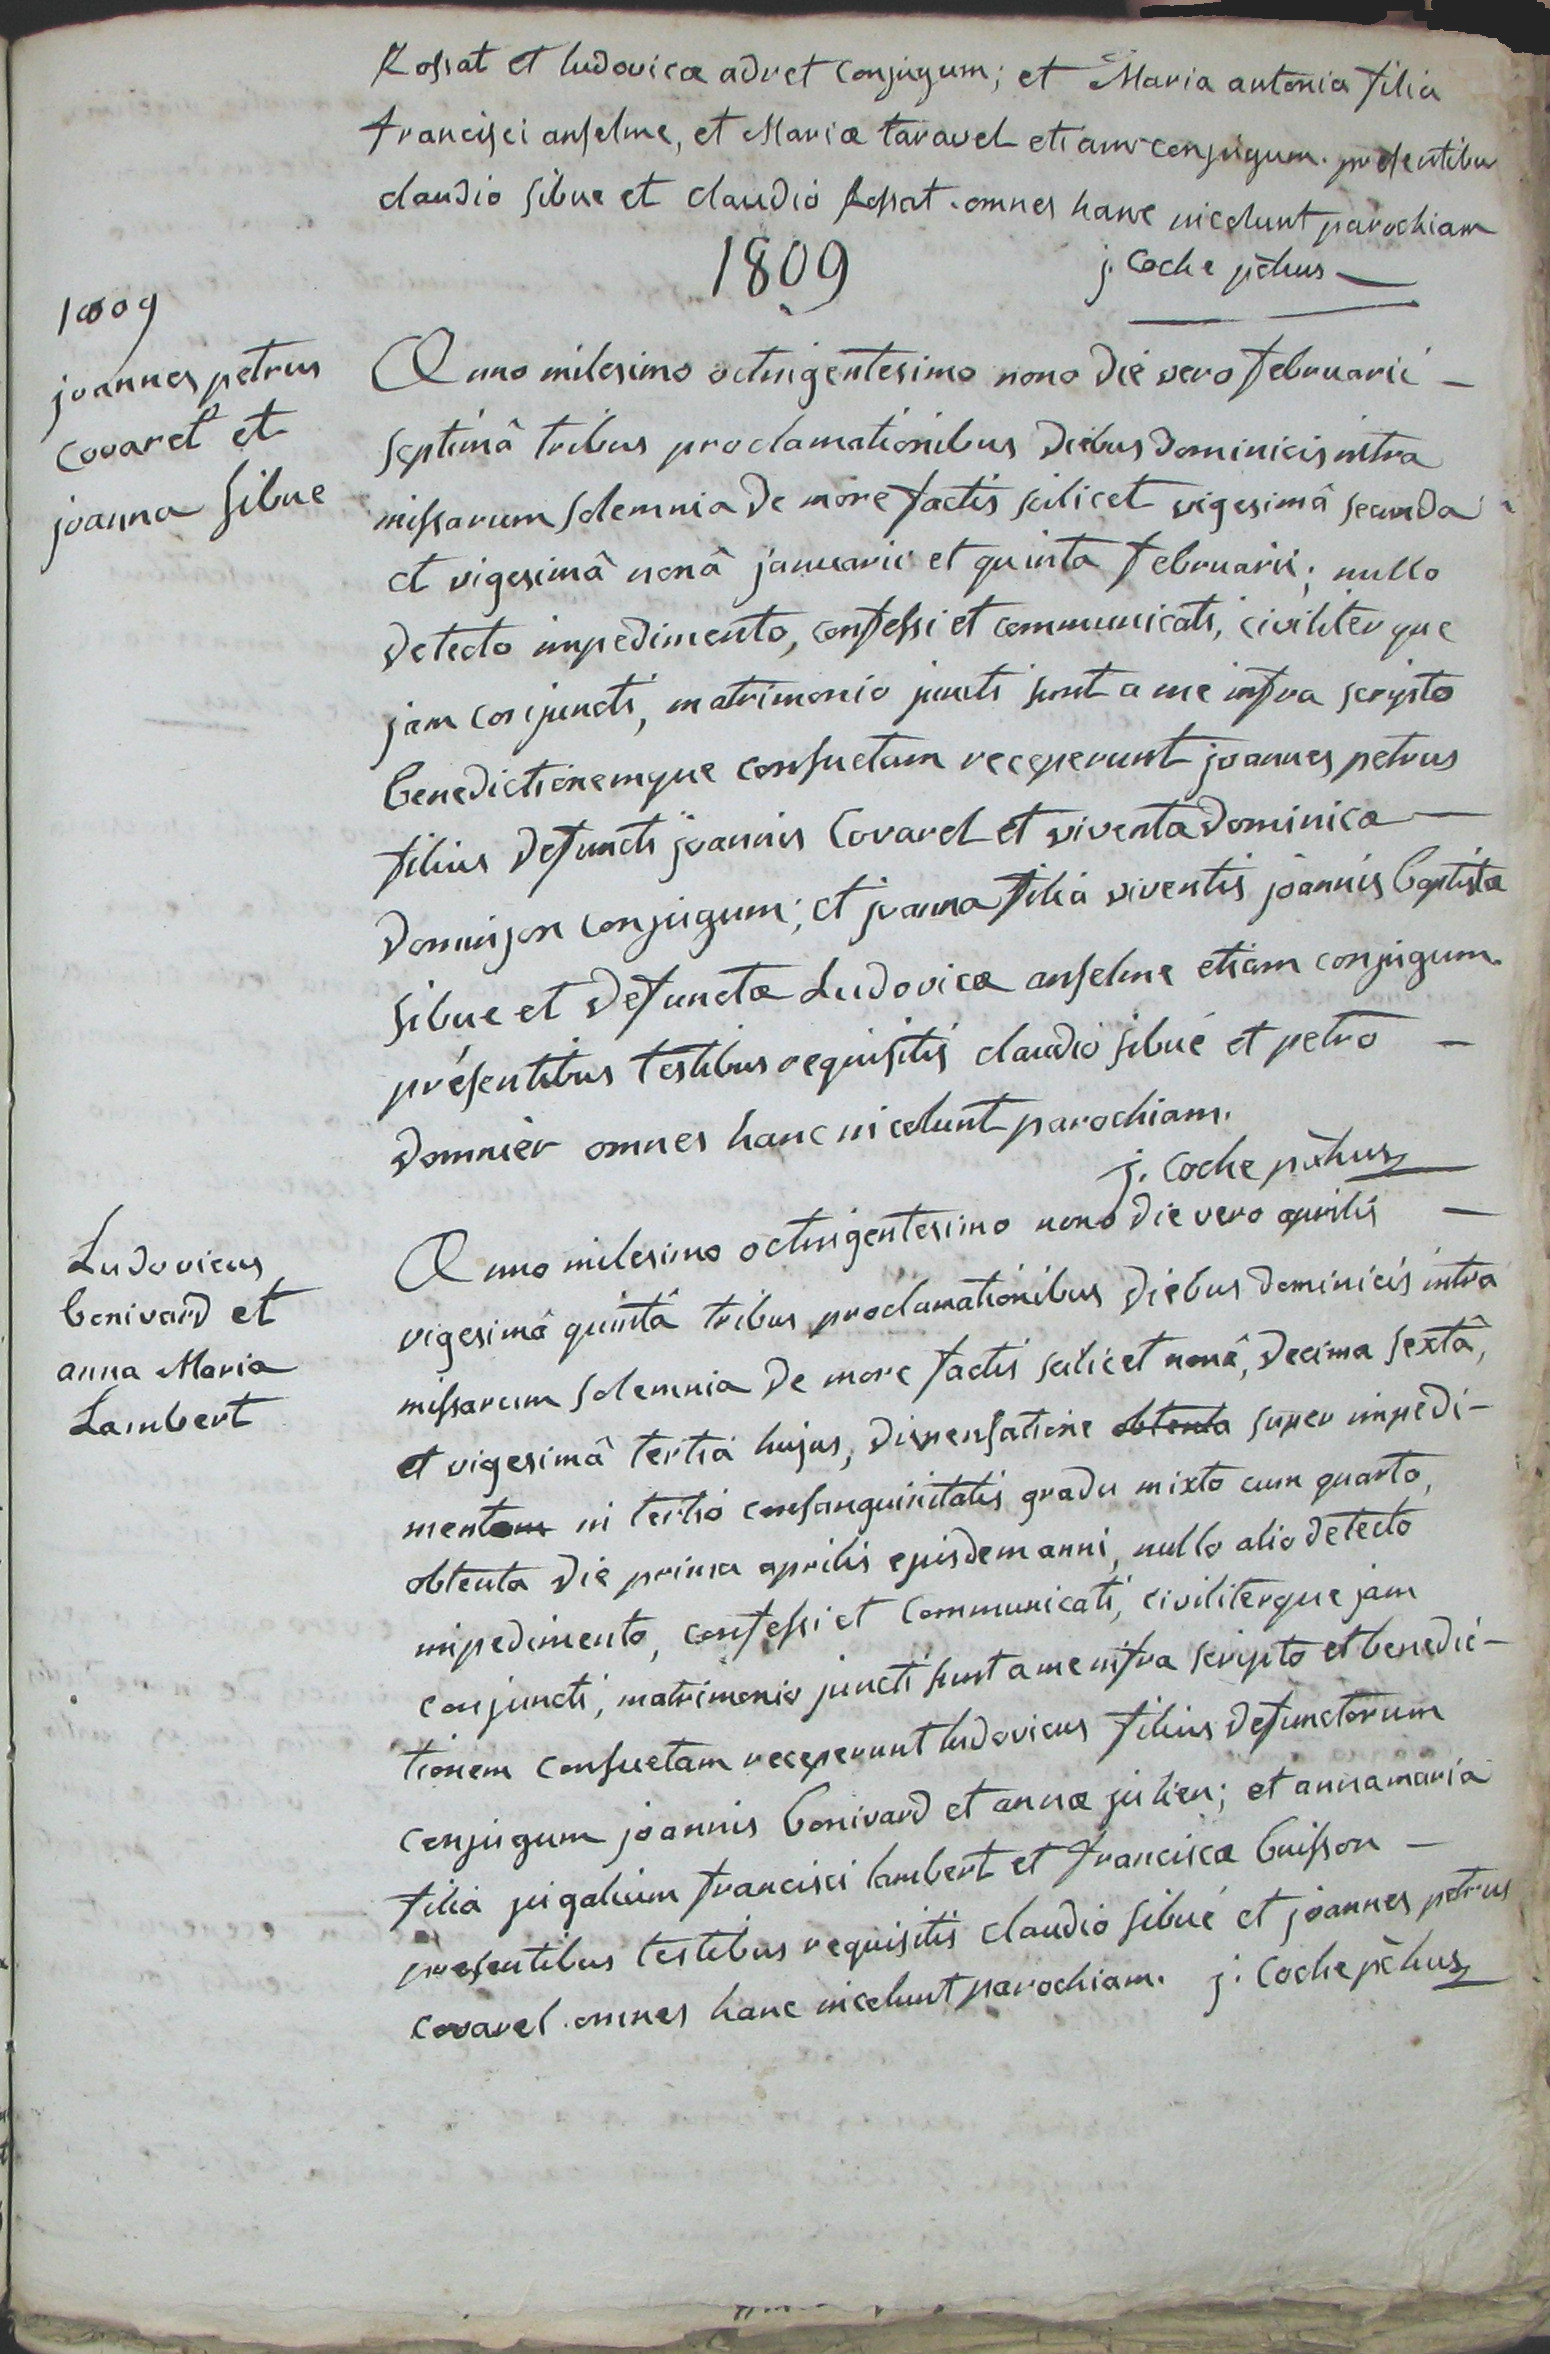 Rossat et ludovicæ adret conjugum; et Maria antonia filia
francisci anselme, et Mariæ taravel etiam conjugum. presentibus
claudio sibue et claudio Rossat. omnes hanc incolunt parochiam
j. Coche pchus
1809
1809
joannes petrus
covarel et
joanna sibue
Anno milesimo octingentesimo nono die vero februarii –
septimâ tribus proclamationibus diebus dominicis intra
missarum solemnia de more factis scilicet vigesimâ secunda
et vigesimâ nonâ januarii et quinta februarii; nullo
detecto impedimento, confessi et communicati, civiliterque
jam conjuncti, matrimonio juncti sunt a me infra scripto
benedictionemque consuetam receperunt joannes petrus
filius defuncti joannis Covarel et viventa dominica –
dominjon conjugum; et joanna filia viventis joannis baptistæ
sibue et defunctæ Ludovicæ anselme etiam conjugum.
présentibus testibus requisitis claudio sibué et petro –
domnier omnes hanc incolunt parochiam.
j. Coche pchus
Ludovicus
bonivard et
anna Maria
Lambert
Anno milesimo octingentesimo nono die vero aprilis –
vigesimâ quintâ tribus proclamationibus diebus dominicis intra
missarum solemnia de more factis scilicet nonâ, decima sextâ,
et vigesimâ tertiâ hujus, dispensatione obtenta super impedi-
mentom in tertio consanguinitatis gradu mixto cum quarto,
obtenta die prima aprilis ejusdem anni, nullo alio detecto
impedimento, confessi et communicati, civiliterque jam
conjuncti, matrimonio juncti sunt a me infra scripto et benedic-
tionem consuetam receperunt ludovicus filius defunctorum
conjugum joannis bonivard et annæ julien; et anna maria
filia jugalium francisci lambert et franciscæ buisson –
presentibus testibus requisitis claudio sibué et joannes petrus
covarel. omnes hanc incolunt parochiam. j. Coche pchus